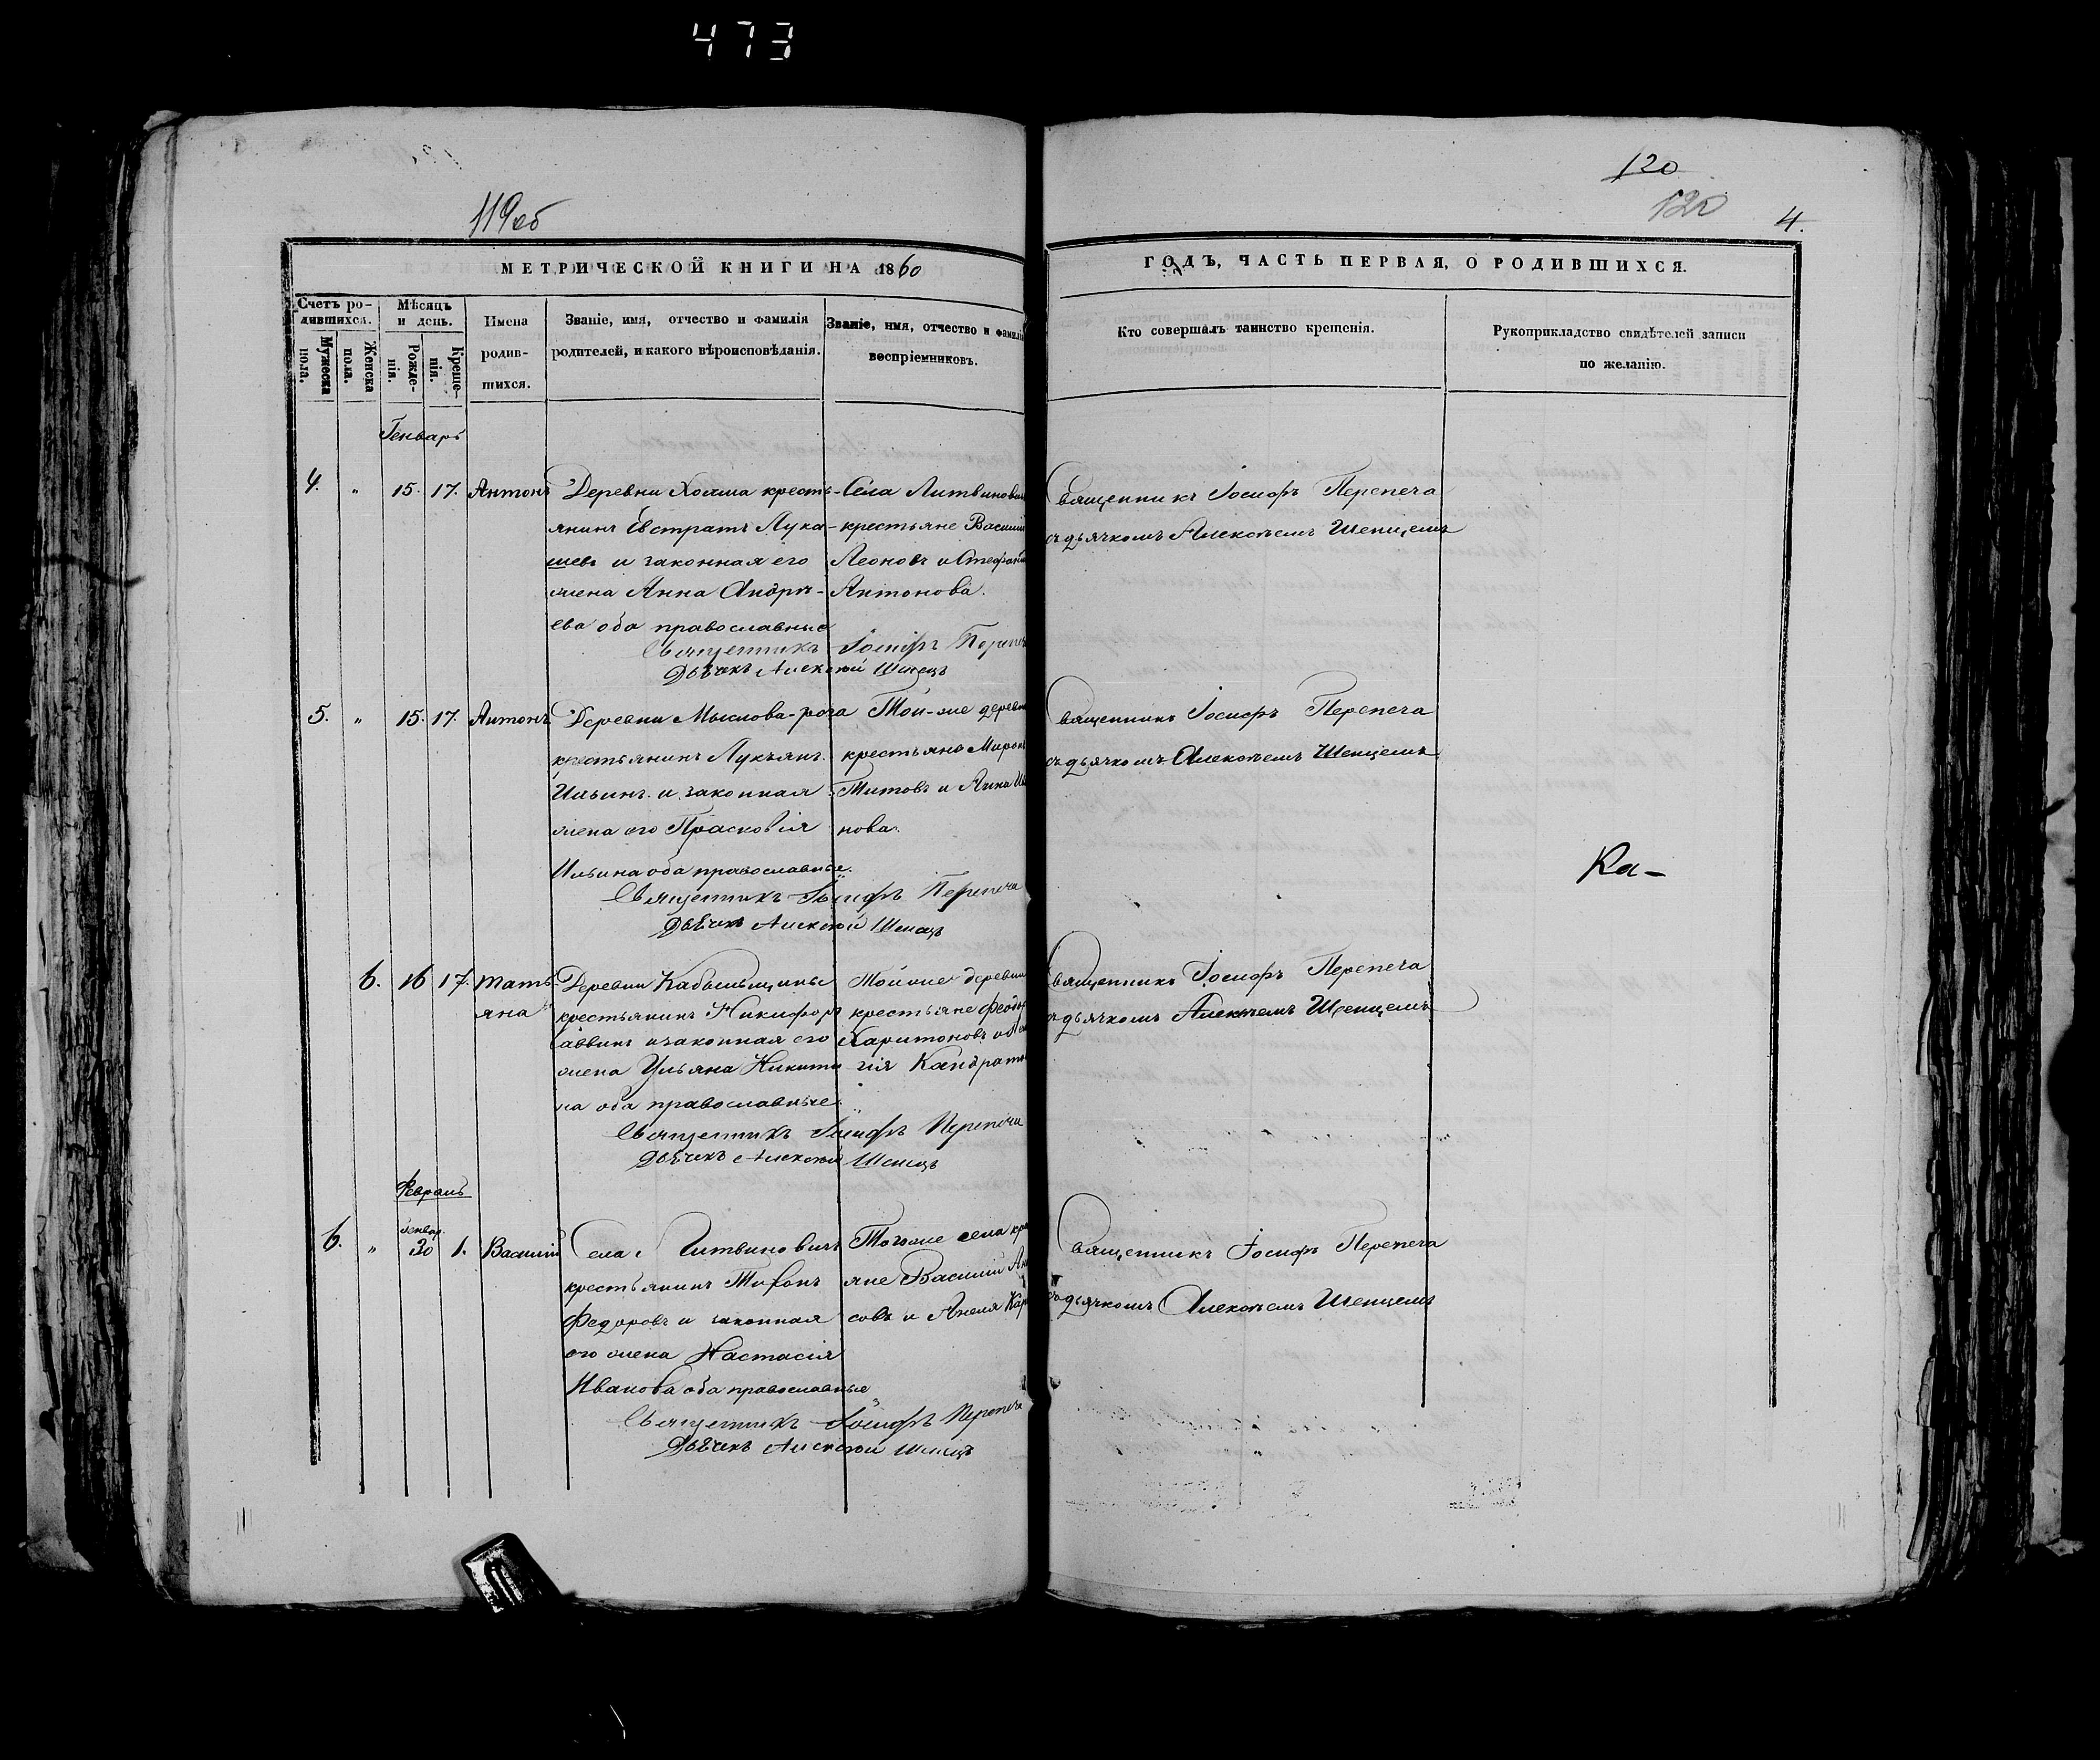 473
119об
120
120
4.
МЕТРИЧЕСКОЙ КНИГИ НА 1860
ГОДЪ, ЧАСТЬ ПЕРВАЯ, О РОДИВШИХСЯ.
Счетъ ро-
дившихся.
Мужеска пола.
Женска пола.
Мѣсяцъ
и день.
Рожде-
нія.
Креще-
нія.
Имена
родив-
шихся.
Званіе, имя, отчество и фамилія
родителей, и какого вѣроисповѣданія.
Званіе, имя, отчество и фамилія
воспріемниковъ.
Кто совершалъ таинство крещенія.
Рукоприкладство свидѣтелей записи
по желанію.
Генварь
4. " 15. 17. Антонъ
Деревни Холма кресть-
янинъ Евстратъ Лука-
шевъ и законная его
жена Анна Андрѣ-
ева оба православные
Села Литвинович
крестьяне Василій
Леоновъ и Стефани
Антонова.
Священникъ Іосифъ Перепеч
Дьячекъ Алексѣй Шенецъ
Священникъ Іосифъ Перепеча
съ дьячкомъ Алексѣемъ Шенцемъ
5. " 15. 17. Антонъ
Деревни Мыслова-рога
крестьянинъ Лукьянъ
Ильинъ и законная
жена его Прасковія
Ильина оба православные.
Той-же деревн
крестьяне Мирон
Титовъ и Анна
нова.
Священникъ Іосифъ Перепеча
Дьячекъ Алексѣй Шенецъ
Священникъ Іосифъ Перепеча
съ дьячкомъ Алексѣемъ Шенцемъ
Ка-
6. 16 17. Тать-
яна
Деревни Кабыльщины
крестьянинъ Никифоръ
Саввинъ и законная его
жена Ульяна Никити
на оба православные.
Той же деревни
крестьяне Феодо
Харитоновъ и
гія Кандрать
Священникъ Іосифъ Перепеча
Дьячекъ Алексѣй Шенецъ
Священникъ Іосифъ Перепеча
съ дьячкомъ Алексѣемъ Шенцемъ
Февраль
6. " Генвар. 30 1. Василій
Села Литвиновичъ
крестьянинъ Тихонъ
Федоровъ и законная
его жена Настасія
Иванова оба православные
Тогоже села кре
яне Василій
совъ и Анеля Кар
Священникъ Іосифъ Перепеча
Дьячекъ Алексѣй Шенецъ
Священникъ Іосифъ Перепеча
съ дьячкомъ Алексѣемъ Шенцемъ